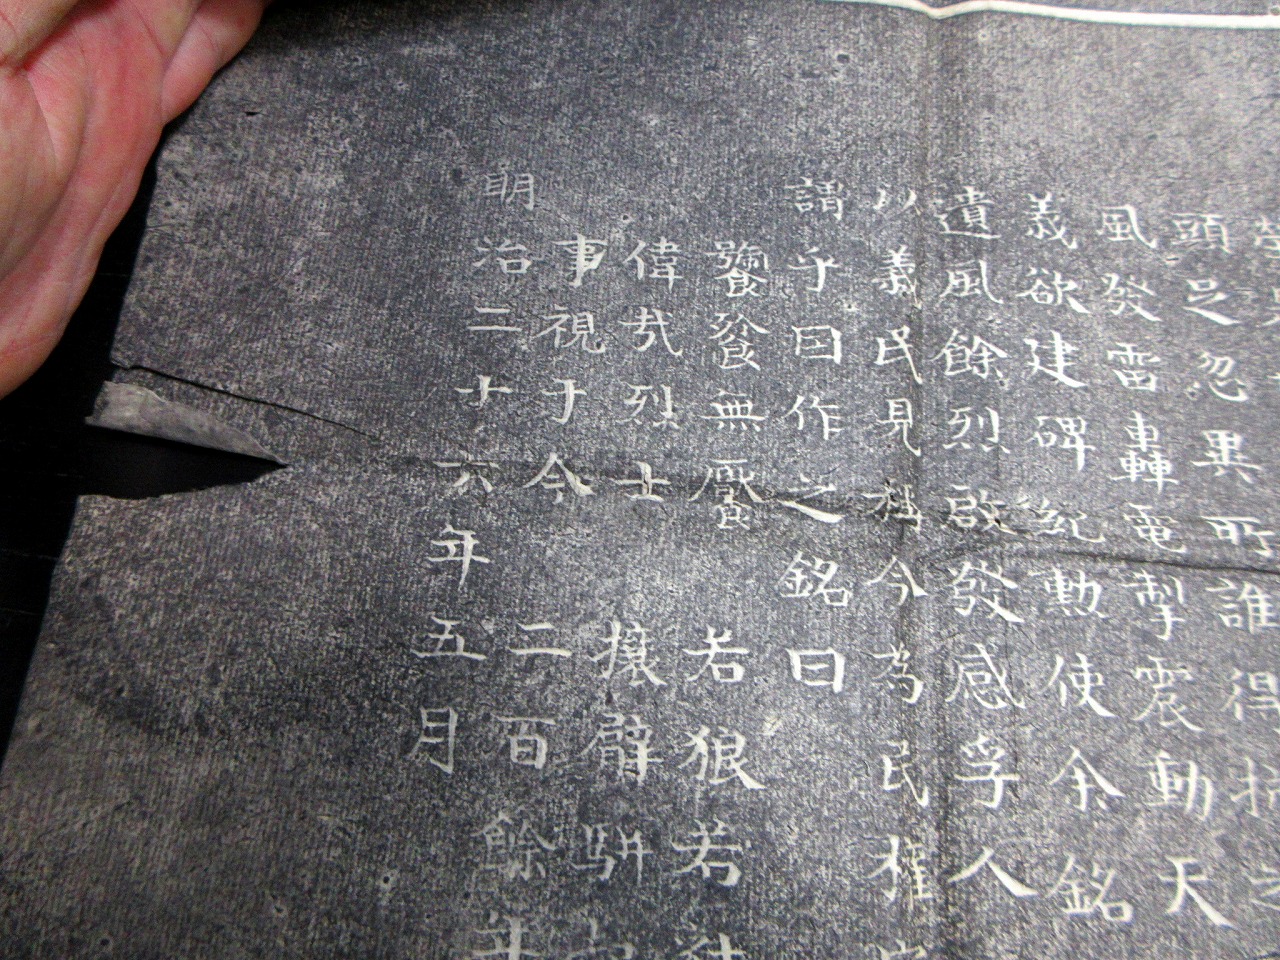 頭足忽異所誰得
風發雷轟電掣震動天
義欲建碑紀勳使余銘
遺風餘烈啟發感孚人
以義民見稱今為民權
謂乎因作之銘曰
饕餮無饜 若狼若
偉哉烈士 攘臂
事視于今 二百餘年
明治二十六年五月